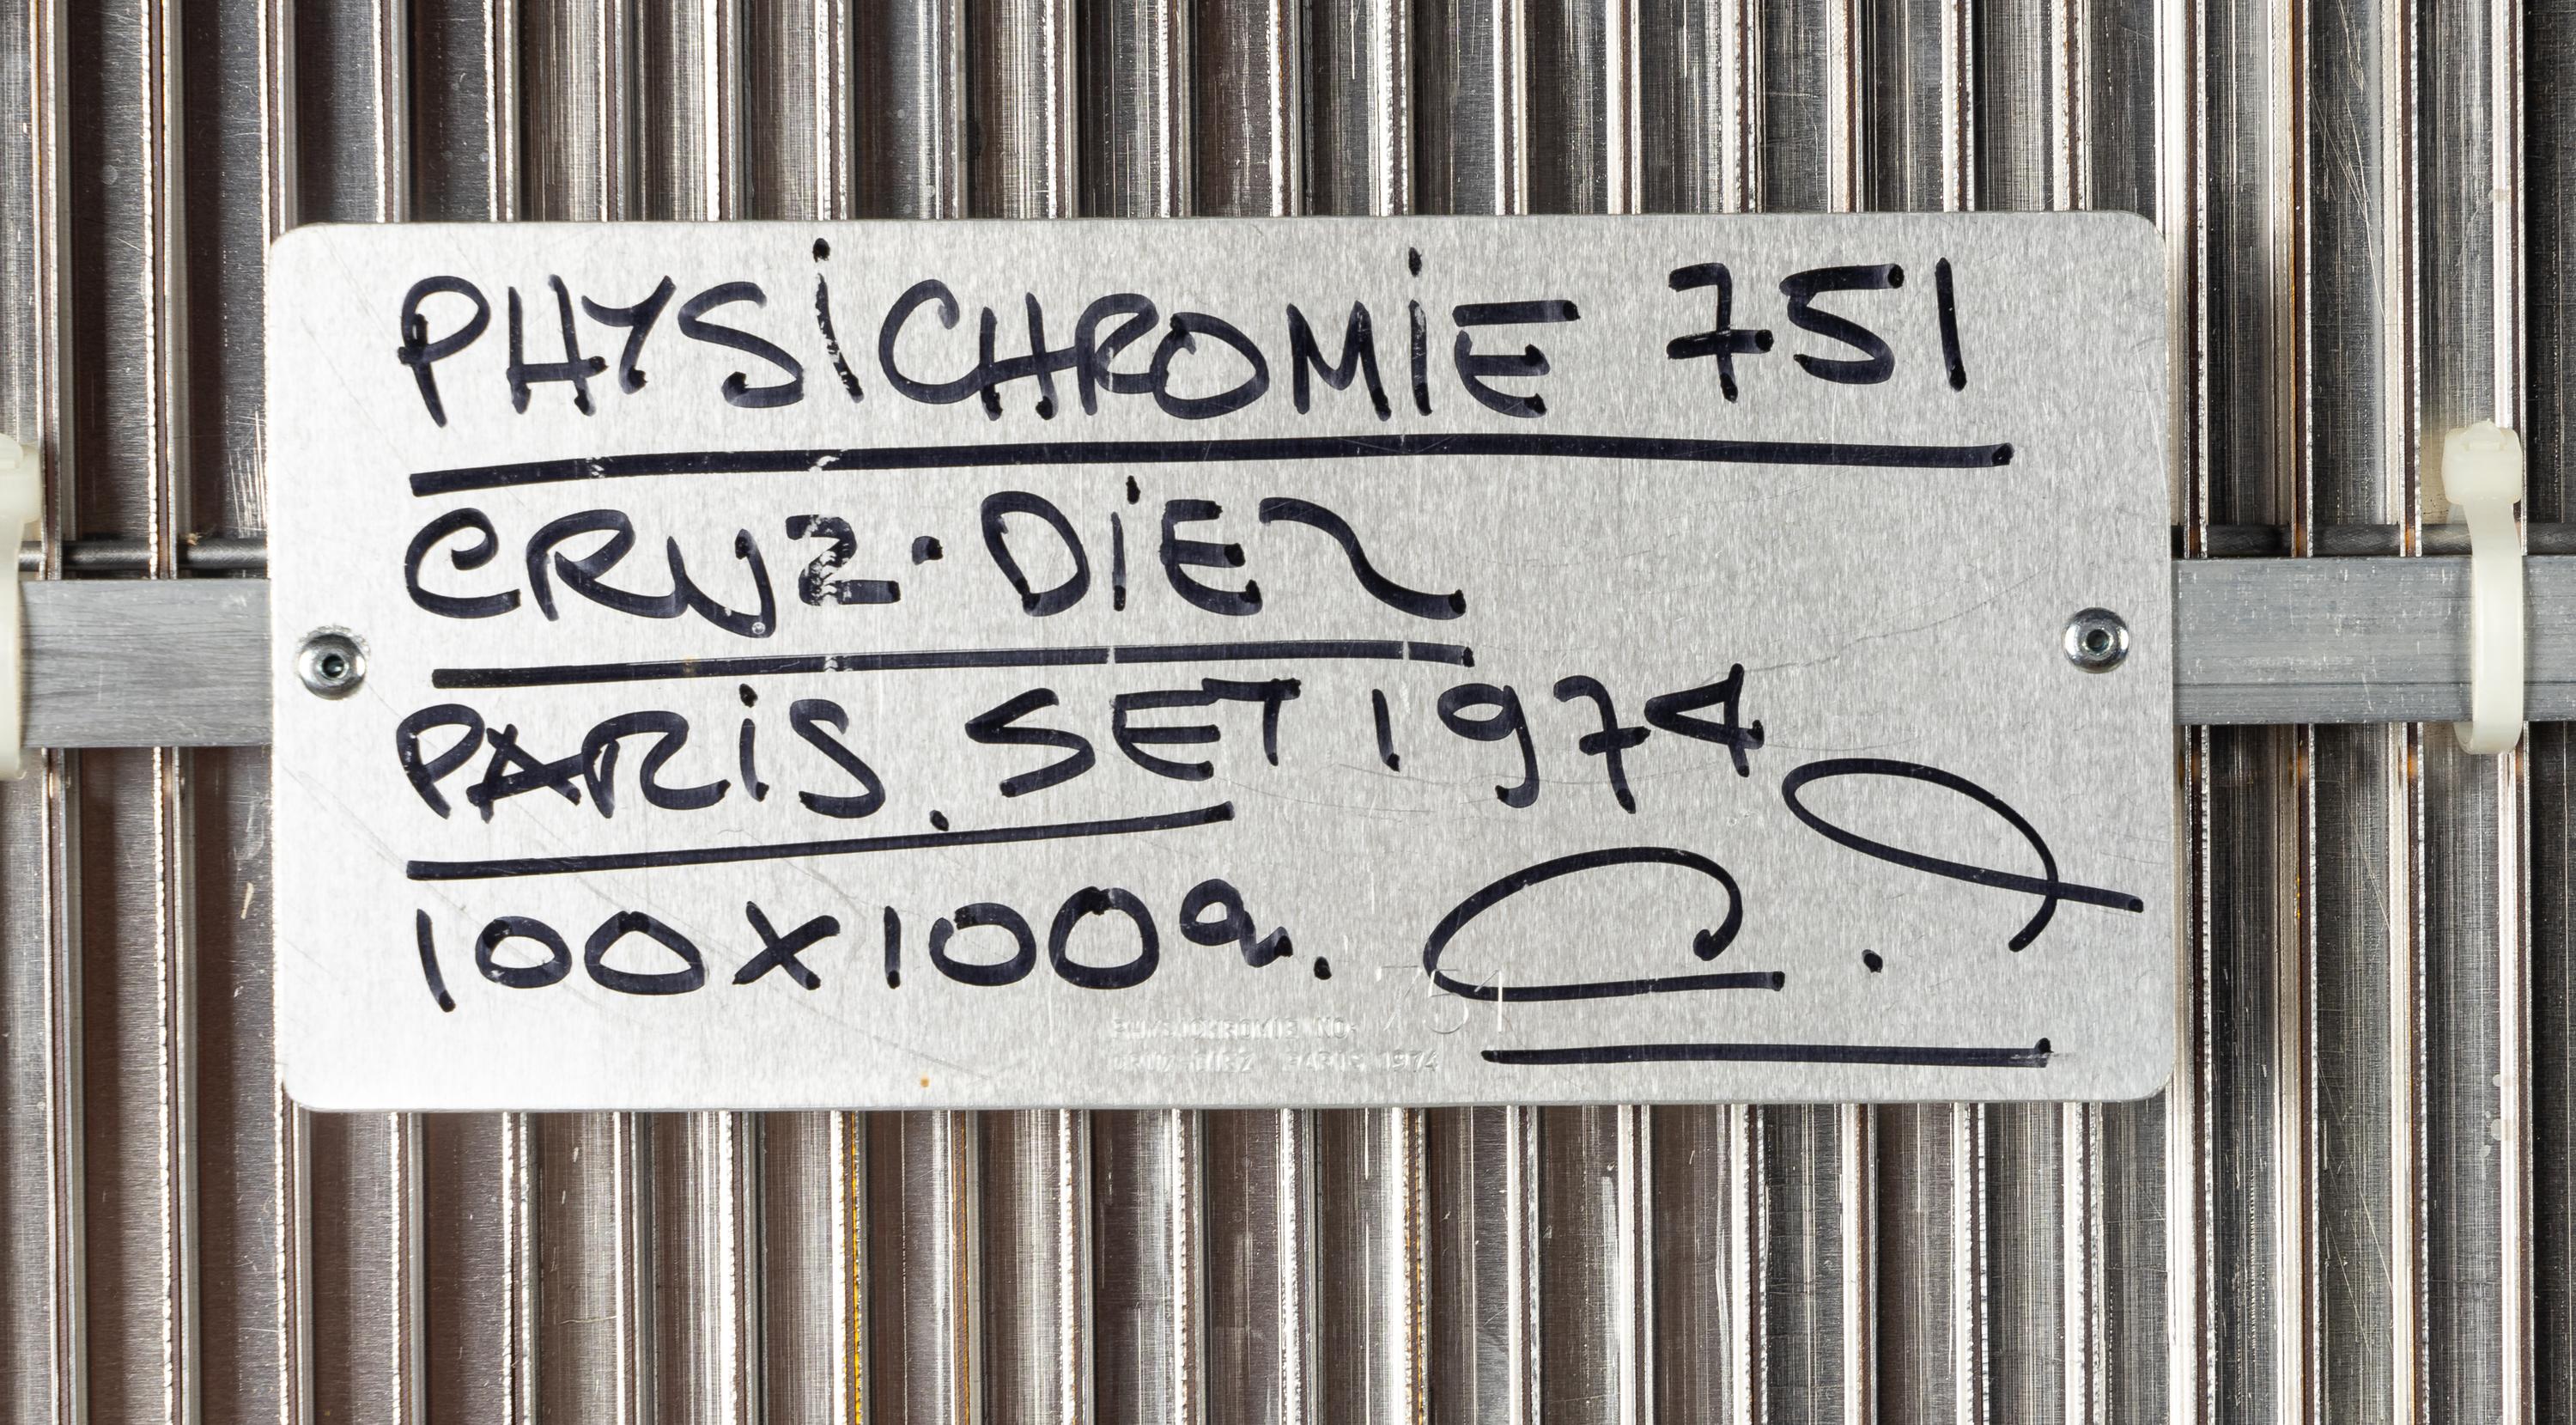 PHYSiCHROMiE 751
CRUZ·DiEZ
PARiS. SET 1974
100X100cm. C.D
PHYSICHROMIE NO. 751
CRUZ-DIEZ PARIS 1974